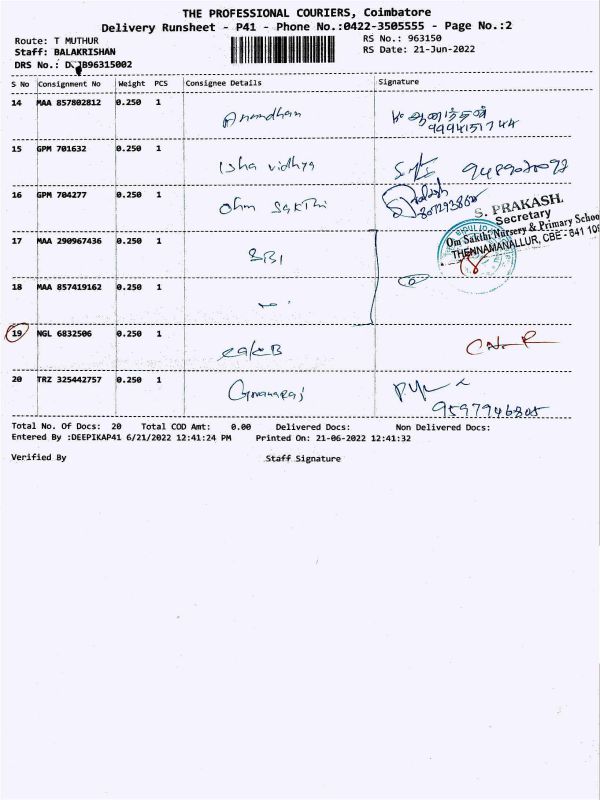 THE PROFESSIONAL COURIERS, Coimbatore
Delivery Runsheet - P41 - Phone No.:0422-3505555 - Page No.:2
Route: T MUTHUR
RS No.: 963150
Staff: BALAKRISHAN
RS Date: 21-Jun-2022
DRS No.: B96315002
S No Consignment No Weight PCS Consignee Details Signature
14 MAA 857802812 0.250 1 ஆனந்தன்
9994151744
15 GPM 701632 0.250 1 Isha vidhya
16 GPM 704277 0.250 1 Ohm Sakthi
S. PRAKASH,
Secretary
Om Sakthi Nursery & Primary Schoo
THENNAMANALLUR, CBE - 641 10
17 MAA 290967436 0.250 1 SBI
18 MAA 857419162 0.250 1
19 NGL 6832506 0.250 1
20 TRZ 325442757 0.250 1 Gnanaraj
9597946805
Total No. Of Docs: 20 Total COD Amt: 0.00 Delivered Docs: Non Delivered Docs:
Entered By :DEEPIKAP41 6/21/2022 12:41:24 PM Printed On: 21-06-2022 12:41:32
Verified By Staff Signature